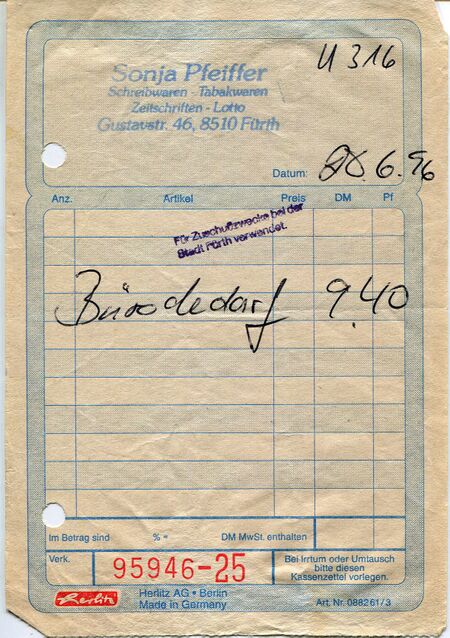 U 316
Sonja Pfeiffer
Schreibwaren - Tabakwaren
Zeitschriften - Lotto
Gustavstr. 46, 8510 Fürth
Datum: 6.96
Anz. Artikel Preis DM Pf
Für Zuschußzwecke bei der
Stadt Fürth verwendet.
Bürobedarf 9.40
Im Betrag sind % = DM MwSt. enthalten
Verk. 95946-25
Bei Irrtum oder Umtausch
bitte diesen
Kassenzettel vorlegen.
Herlitz Herlitz AG • Berlin
Made in Germany
Art. Nr. 088261/3